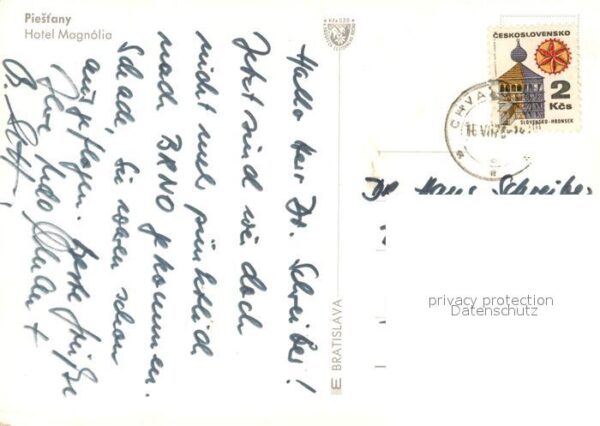 Piešťany
Hotel Magnólia
Hallo Herr Dr. Schreiber!
Jetzt sind wir doch
nicht mehr pünktlich
nach BRNO gekommen.
Schade, Sie waren schon
ausgeflogen. Beste Grüße
Ihre
BRATISLAVA
ČESKOSLOVENSKO
2
Kčs
SLOVENSKO-HRONSEK
CHVA
Dr. Hans Schreiber
privacy protection
Datenschutz